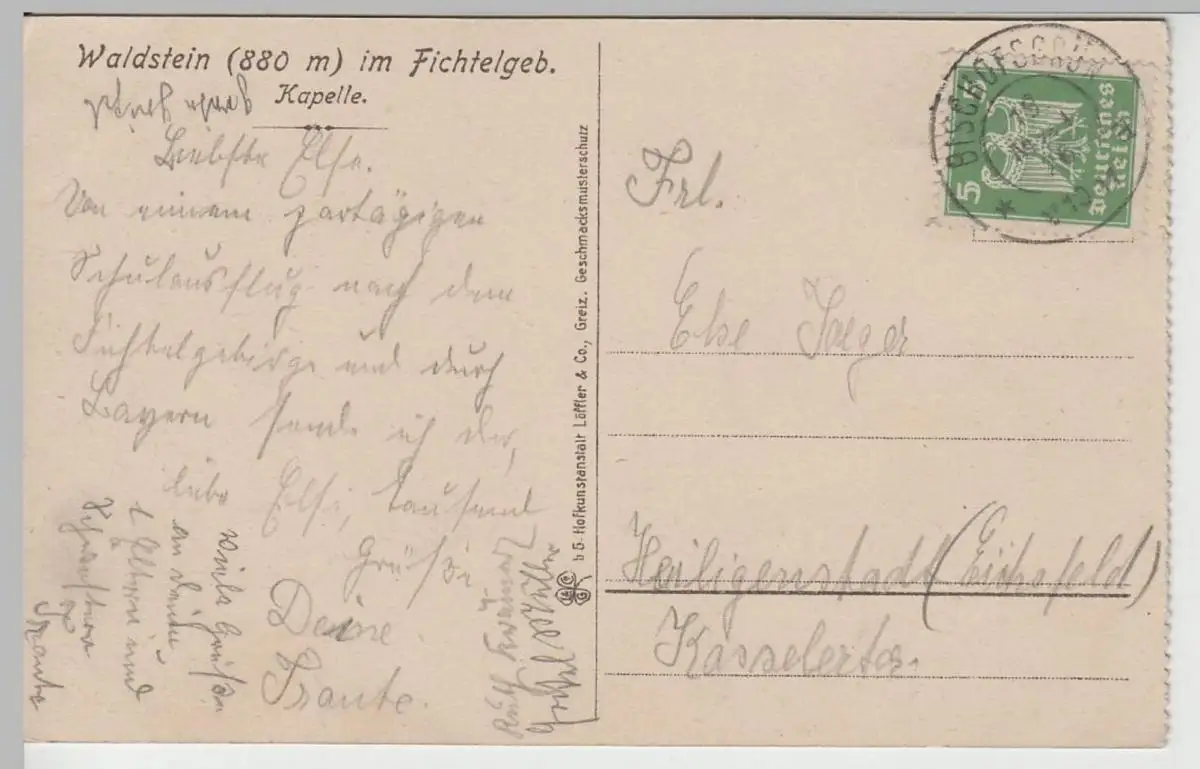 Waldstein (880 m) im Fichtelgeb.
Kapelle.
Liebste Else.
Von einem
Schulausflug nach dem
Fichtelgebirge und durch
Bayern sende ich dir,
liebe Else, tausend
Grüße
Deine
Traute.
Viele Grüße
an Deine
Eltern und
Schwestern
Traute
b G-Hofkunstanstalt Löffler & Co., Greiz. Geschmacksmusterschutz
BISCHOFSGRÜN
5
Deutsches
Reich
Frl.
Else Jaeger
Heiligenstadt (Eichsfeld)
Kasselertor.